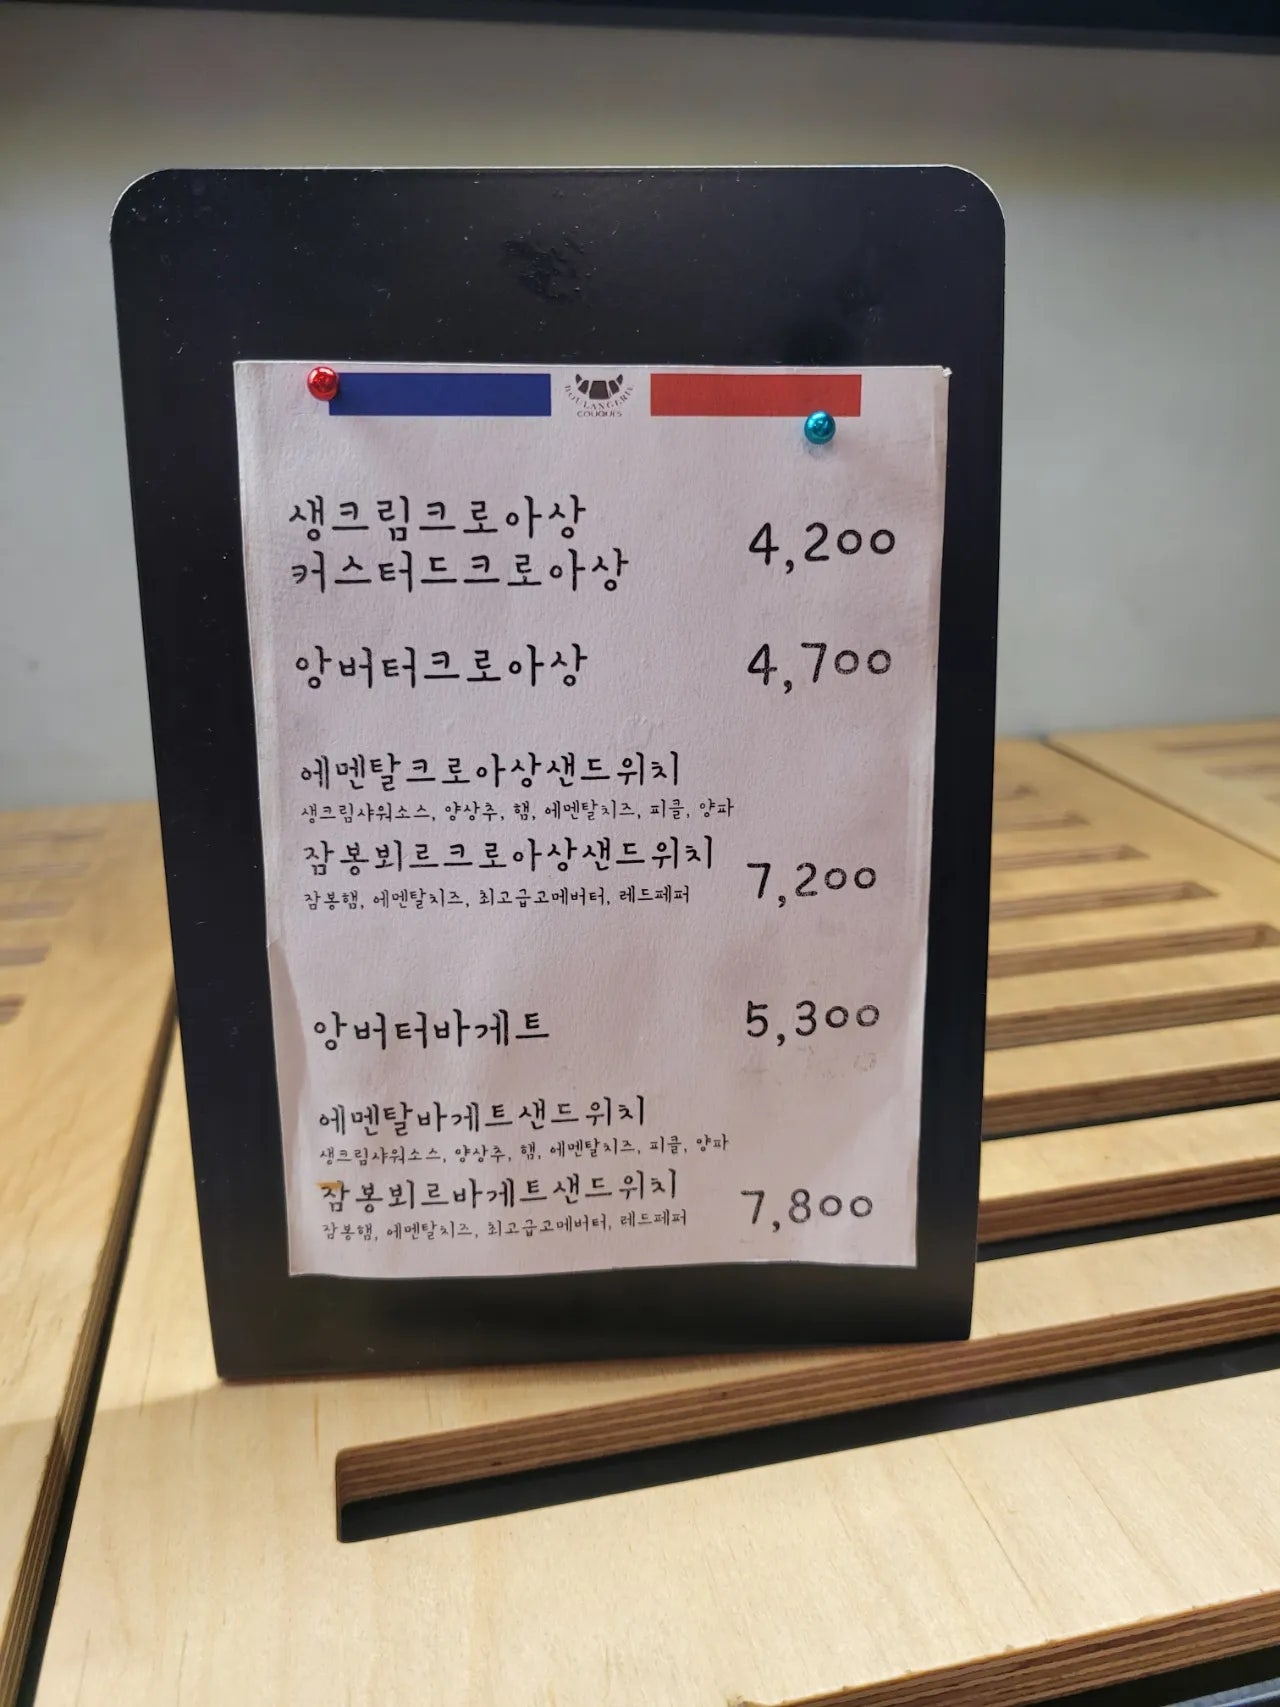 BOULANGERIE
COUQUES
생크림크로아상
커스터드크로아상
4,200
앙버터크로아상 4,700
에멘탈크로아상샌드위치
생크림샤워소스, 양상추, 햄, 에멘탈치즈, 피클, 양파
잠봉뵈르크로아상샌드위치 7,200
잠봉햄, 에멘탈치즈, 최고급고메버터, 레드페퍼
앙버터바게트 5,300
에멘탈바게트샌드위치
생크림샤워소스, 양상추, 햄, 에멘탈치즈, 피클, 양파
잠봉뵈르바게트샌드위치 7,800
잠봉햄, 에멘탈치즈, 최고급고메버터, 레드페퍼